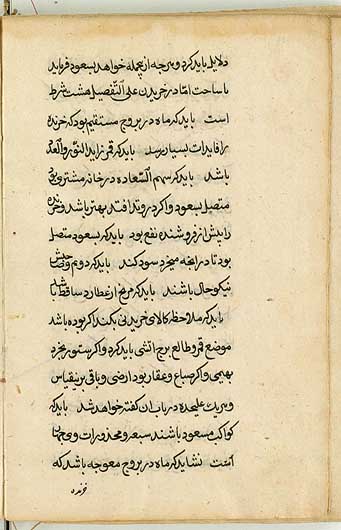 دلایل باید کرد و هرچه از جمله خواهد بسعود فرماید
با ساحت امّا در خریدن علی التّفصیل هشت شرط
است باید که ماه در بروج مستقیم بود که خرنده
را فایدات بسیار رسد باید که قمر زاید النّور والعدد
باشد باید که سهم السّعاده در خانه مشتری بود
متصل بسعود و اکر در وتد افتد بهتر باشد و خرنده
را بیش از فروشنده نفع بود باید که بسعود متصل
بود تا در انچه میخرد سود کند باید که دوم و صاحبش
نیکو حال باشند باید که مریخ از عطارد ساقط باشد
باید که ملاحظه کالای خریدنی بکند اکر بوده باشد
موضع قمر و طالع برج اتشی باید کرد و اکر ستور بخرد
بهیمی و اکر ضیاع و عقار بود ارضی و باقی برین قیاس
و هر یک علیحده در باب ان کفته خواهد شد باید که
کواکب مسعود باشند سبعه و محذورات وی
است نشاید که ماه در بروج معوجه باشد که
خرنده